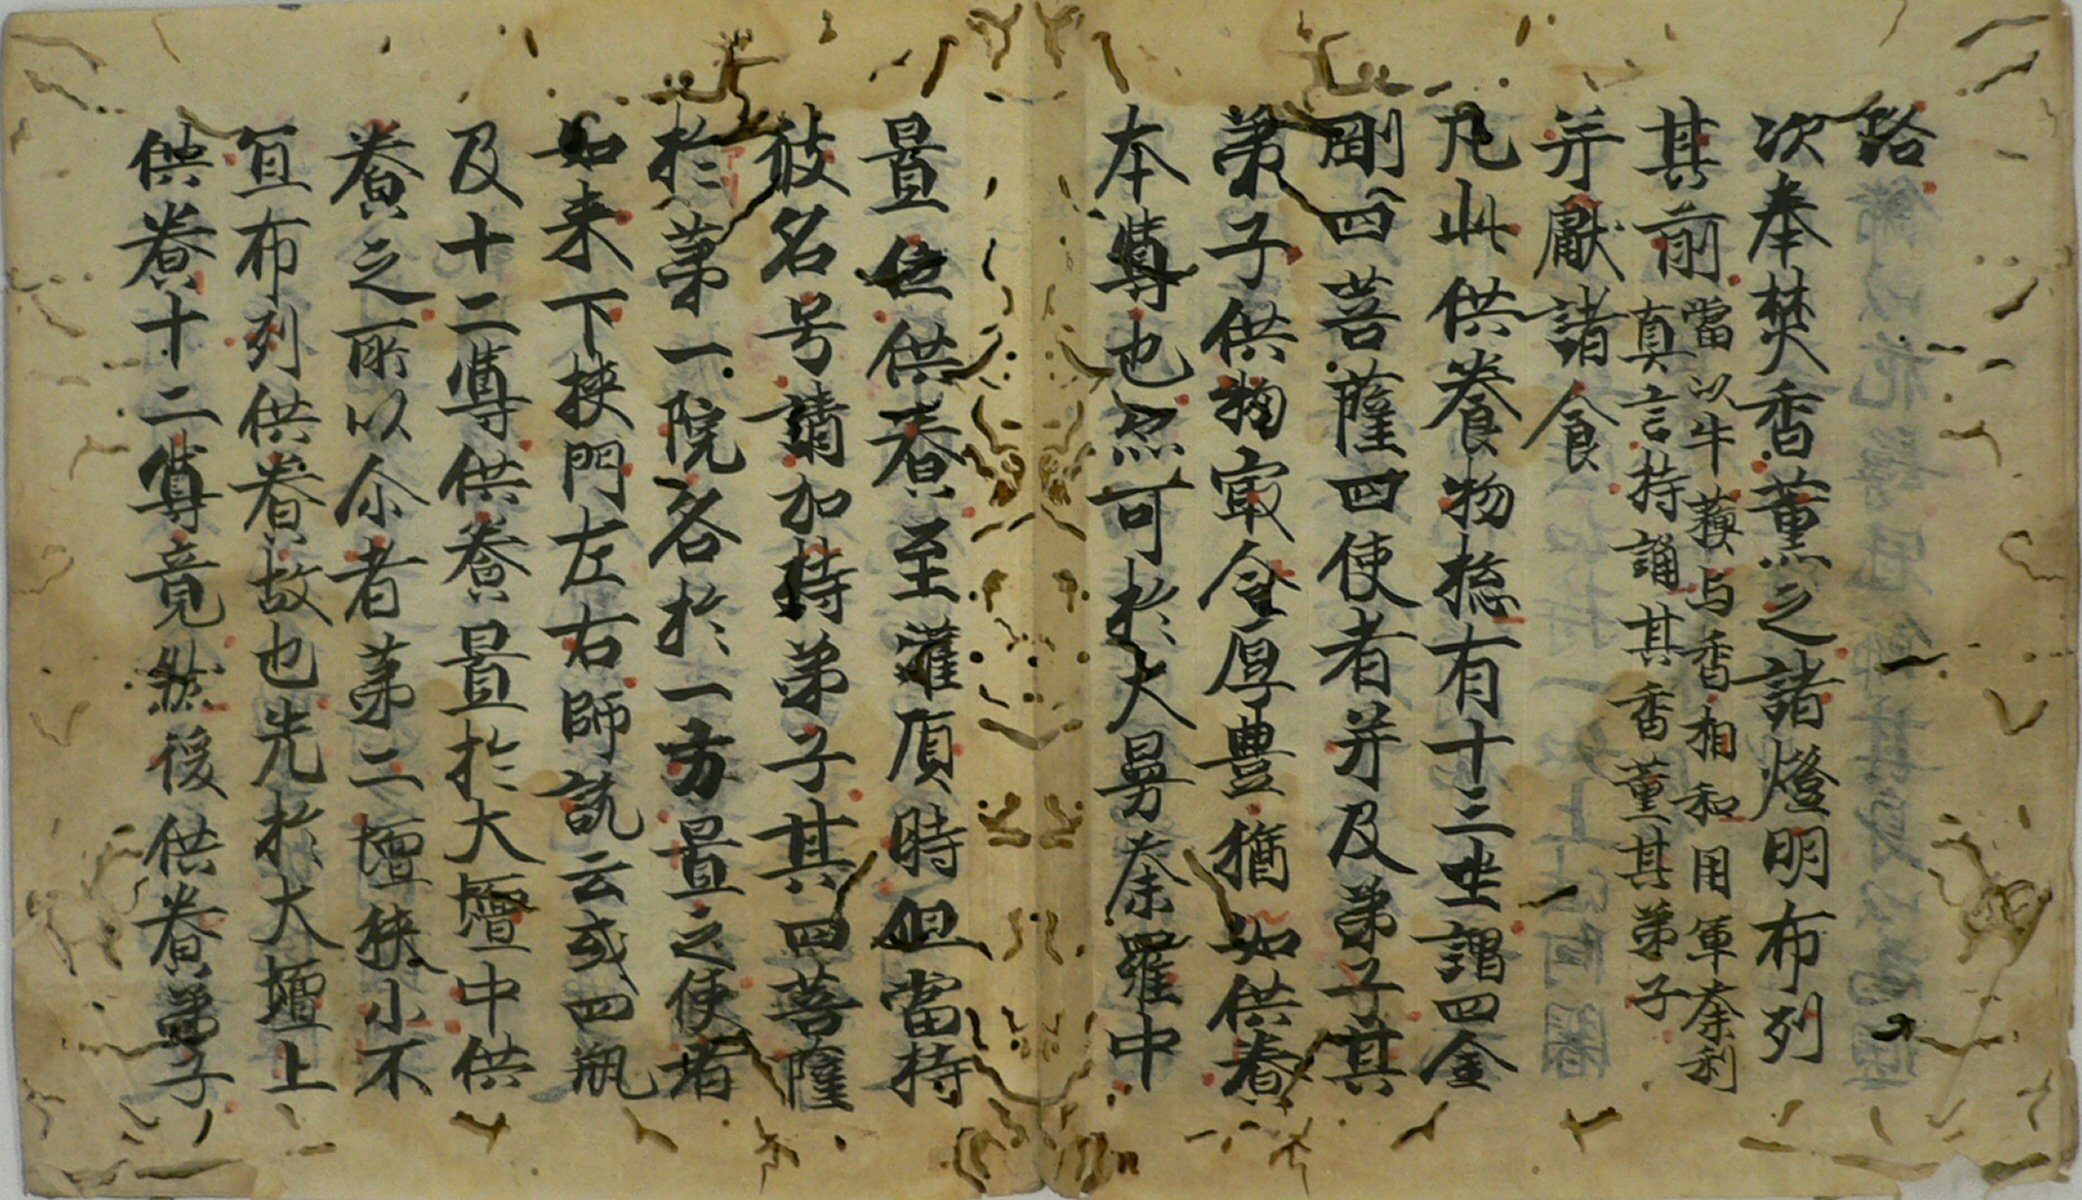 路
次奉焚香薫之諸燈明布列
其前當以牛蘇与香相和用軍荼利
真言持誦其香薫其弟子
并獻諸食
凡此供養物捴有十三坐謂四金
剛四菩薩四使者并及弟子其
弟子供物宜令厚豊猶如供養
本尊也然可於大曼荼羅中
置位供養至灌頂時但當持
彼名号請加持弟子其四菩薩
於第一院各於一方置之使者
如来下挾門左右師説云或四瓶
及十二尊供養置於大壇中供
養之所以尒者第二壇狭小不
宜布列供養故也先於大壇上
供養十二尊竟然後供養弟子